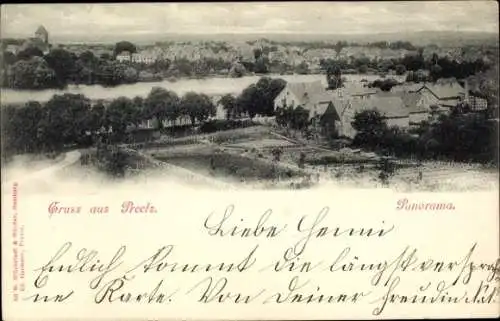 Gruss aus Preetz.
Panorama.
Liebe Henni
Endlich kommt die längst versproch
ene Karte. Von Deiner Freundin